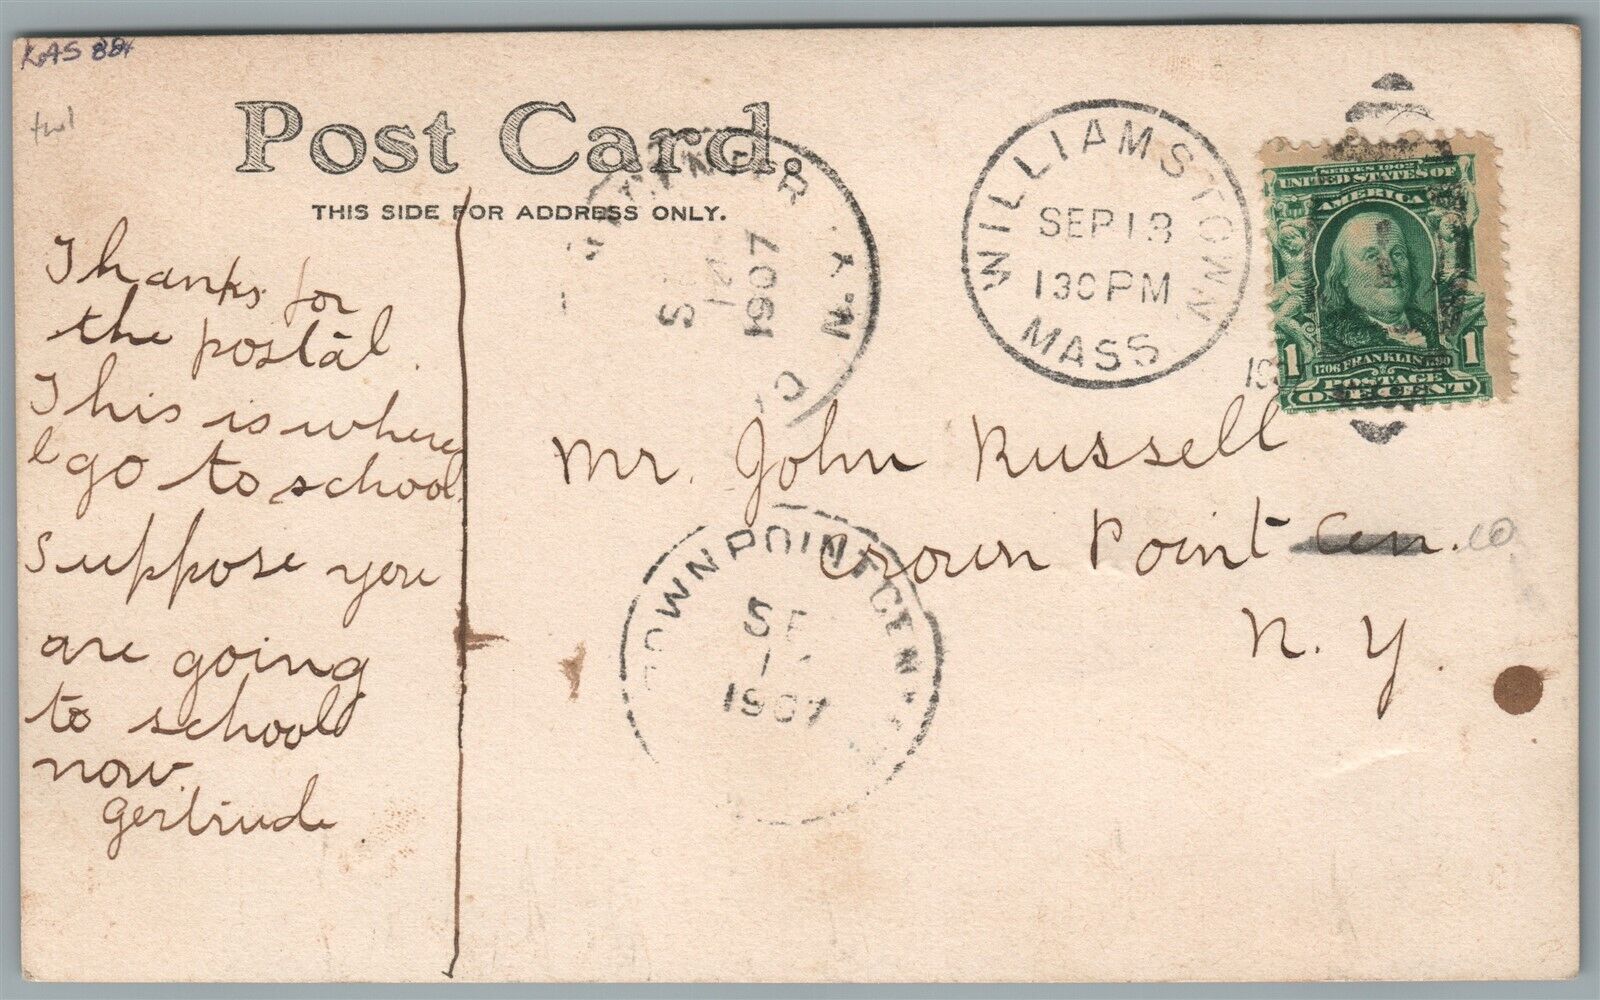 KAS 88
Post Card.
THIS SIDE FOR ADDRESS ONLY.
Thanks for
the postal.
This is where
I go to school
Suppose you
are going
to school
now.
Gertrude.
1907
N.Y.
WILLIAMSTOWN
SEP 13
130 PM
MASS
SERIES 1902
UNITED STATES OF
AMERICA
1 1
1706 FRANKLIN 1790
POSTAGE
ONE CENT
Mr. John Russell
Crown Point Cen. co
N. Y.
CROWN POINT CENT
SE
1907